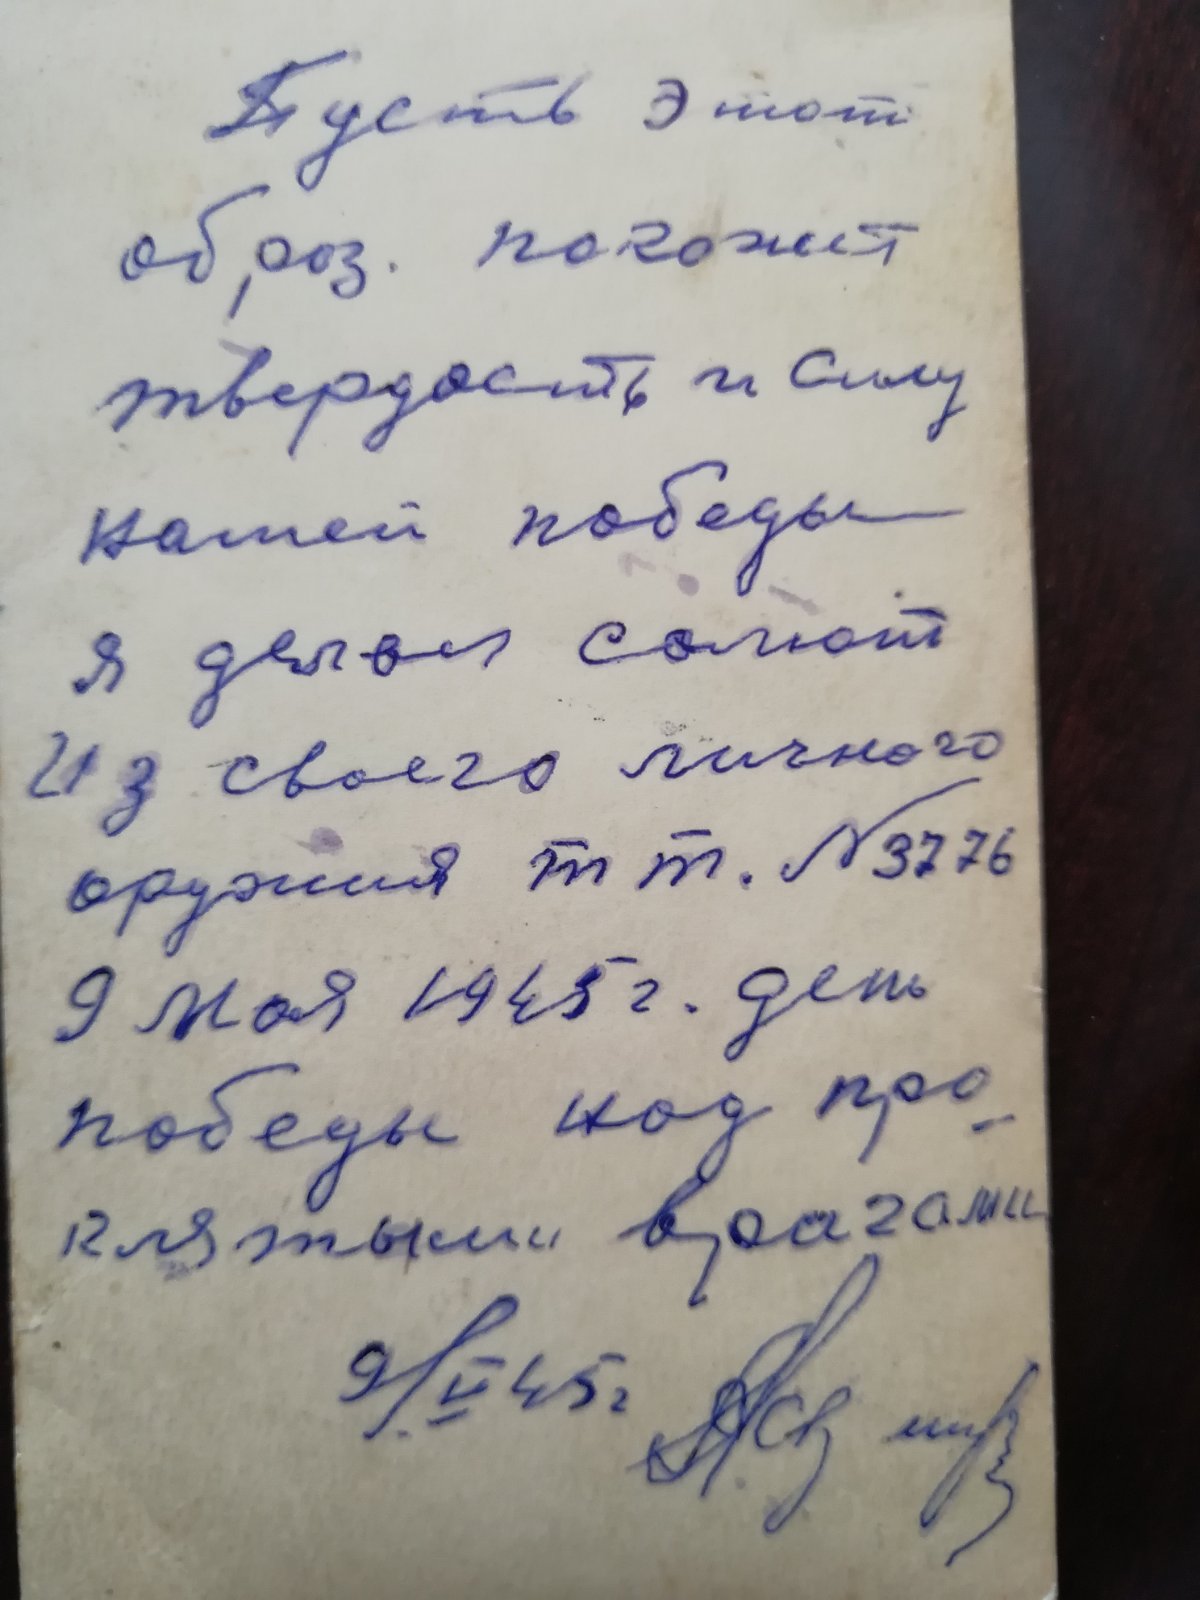 Пусть этот
образ. покожет
твердость и силу
нашей победы
я делаю салют
Из своего личного
оружия тт. N 3776
9 Мая 1945 г. день
победы над про-
клятыми врагами
9/V 45 г